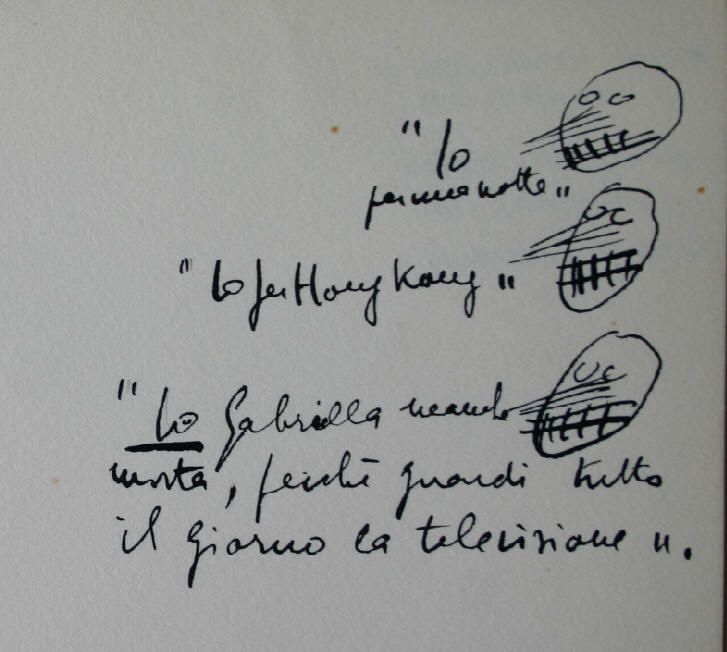 " Io
"
" Io per Hong Kong "
" Io Gabriella
morta, perchè guardi tutto
il giorno la televisione ".